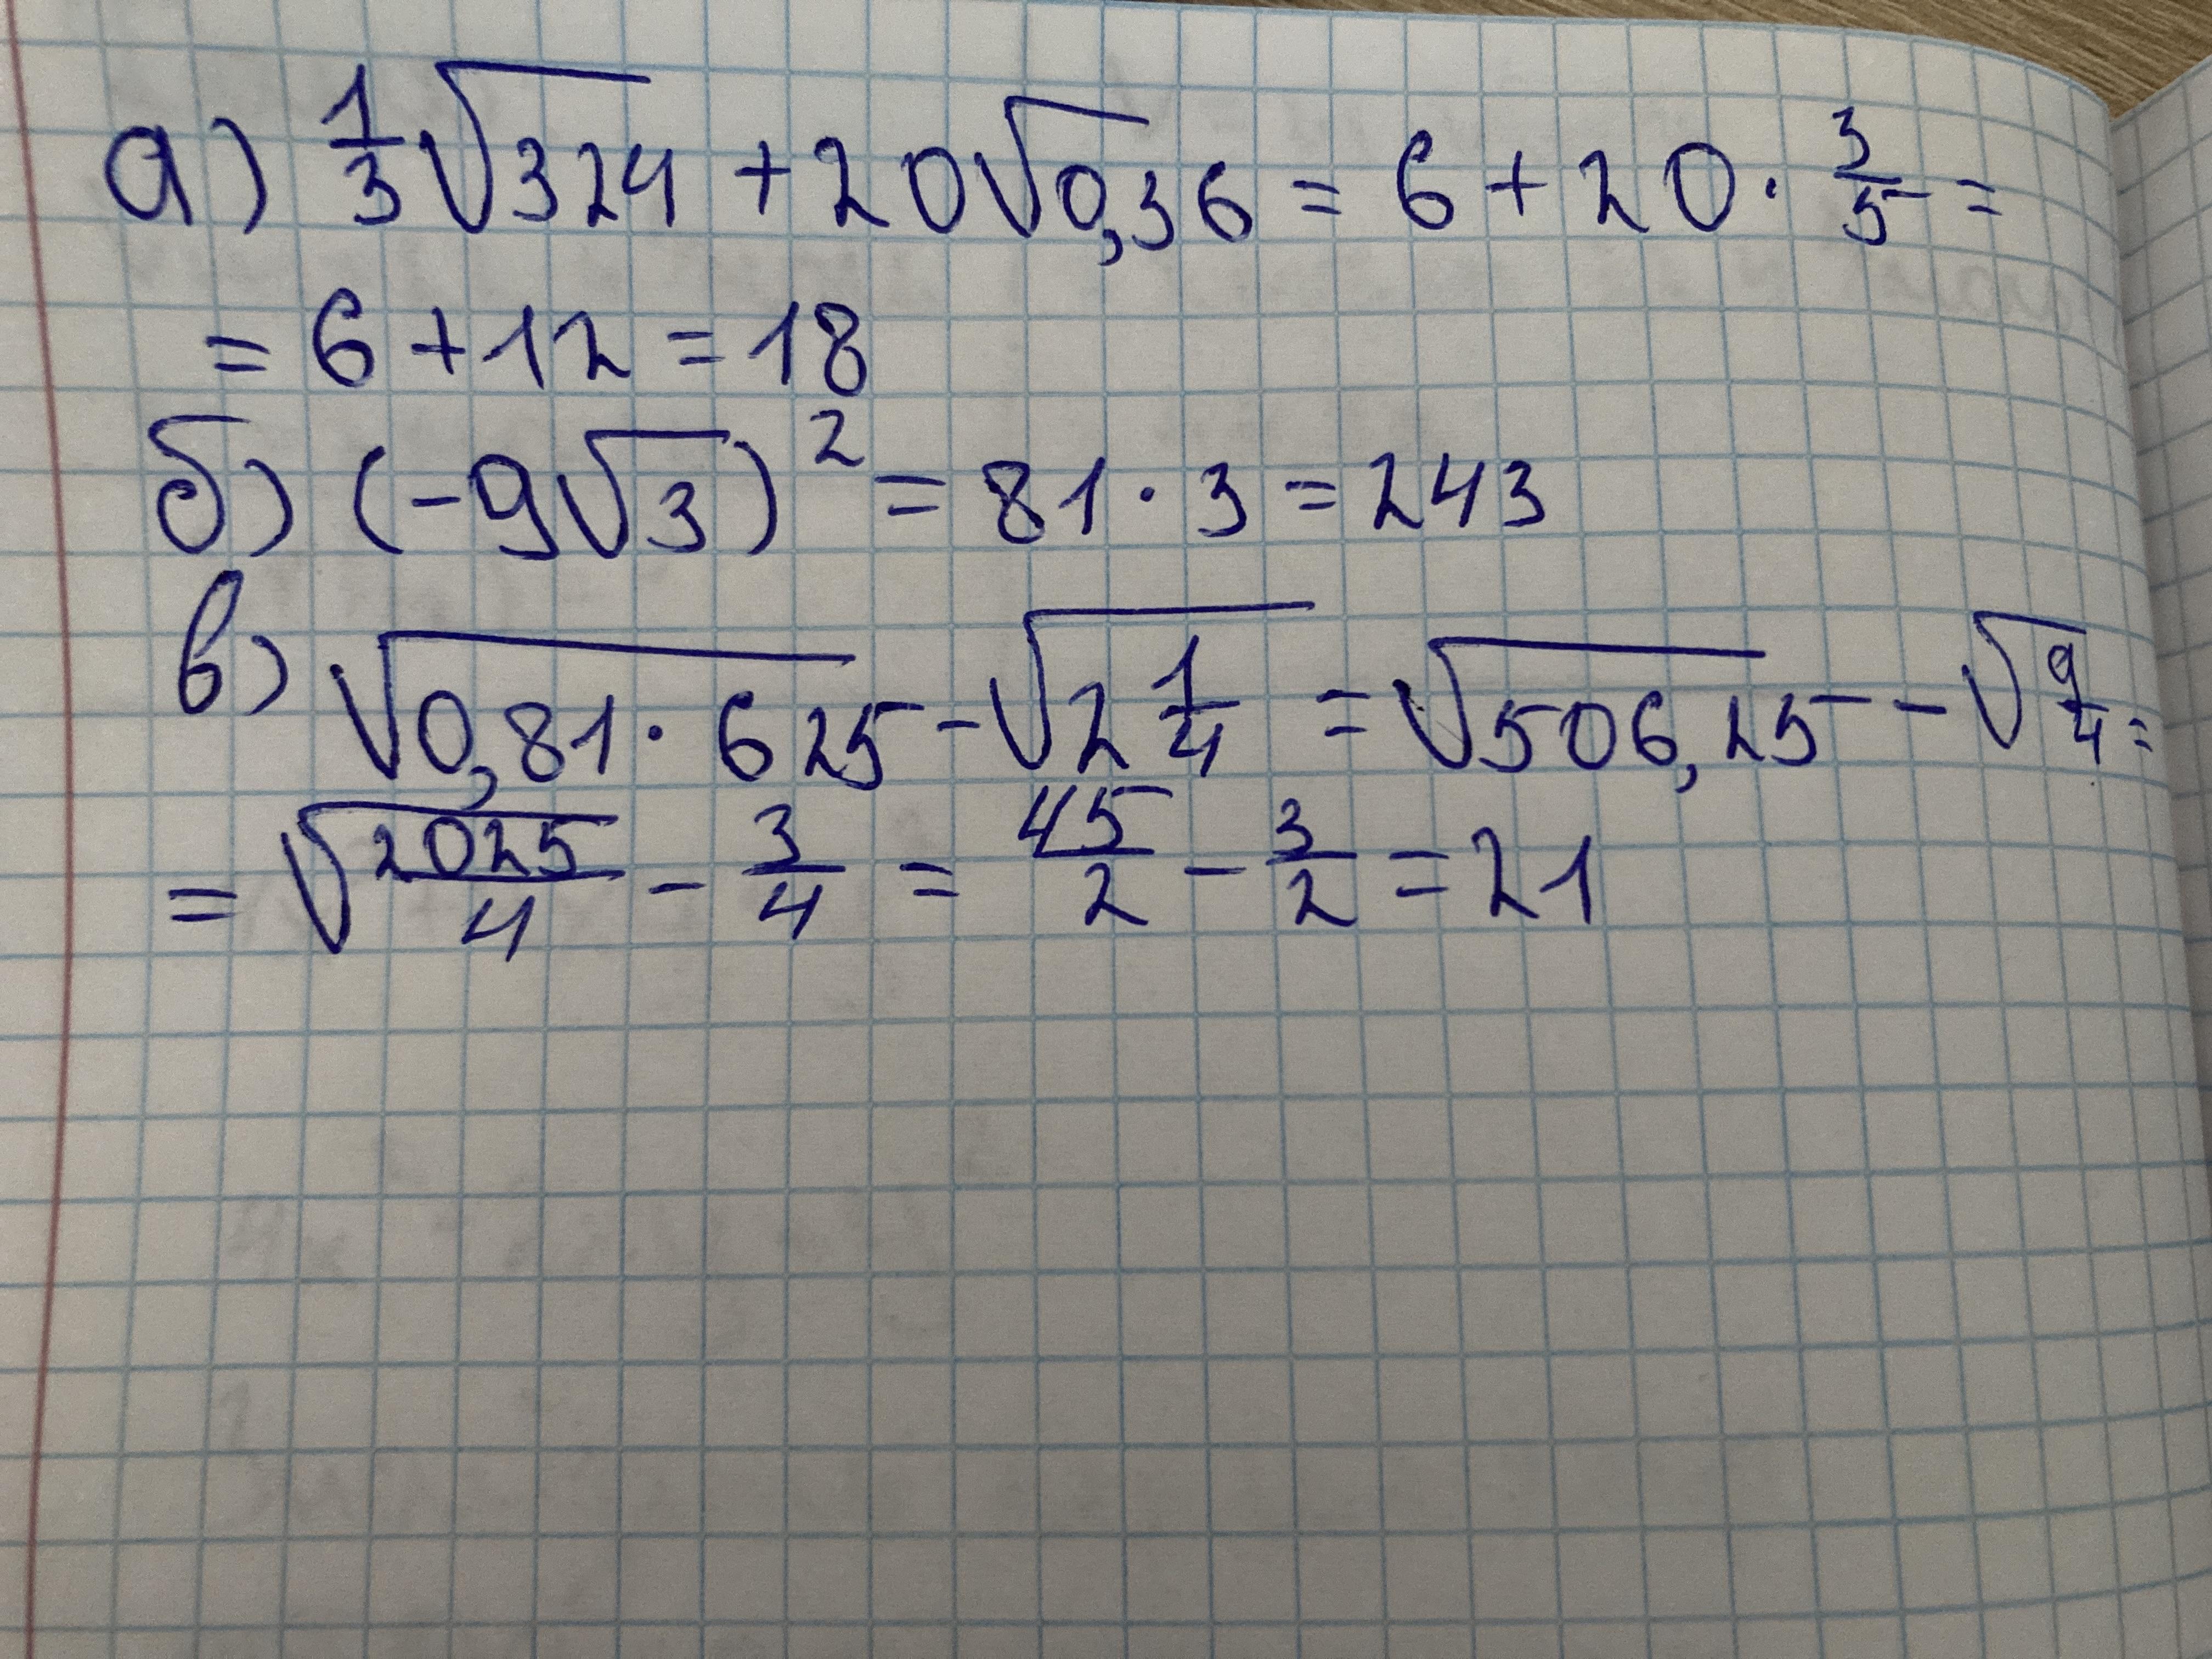 а) 1/3 √324 + 20√0,36 = 6 + 20 · 3/5 =
= 6 + 12 = 18
б) (-9√3)² = 81 · 3 = 243
в) √(0,81 · 625) - √(2 1/4) = √506,25 - √(9/4) =
= √(2025/4) - 3/4 = 45/2 - 3/2 = 21